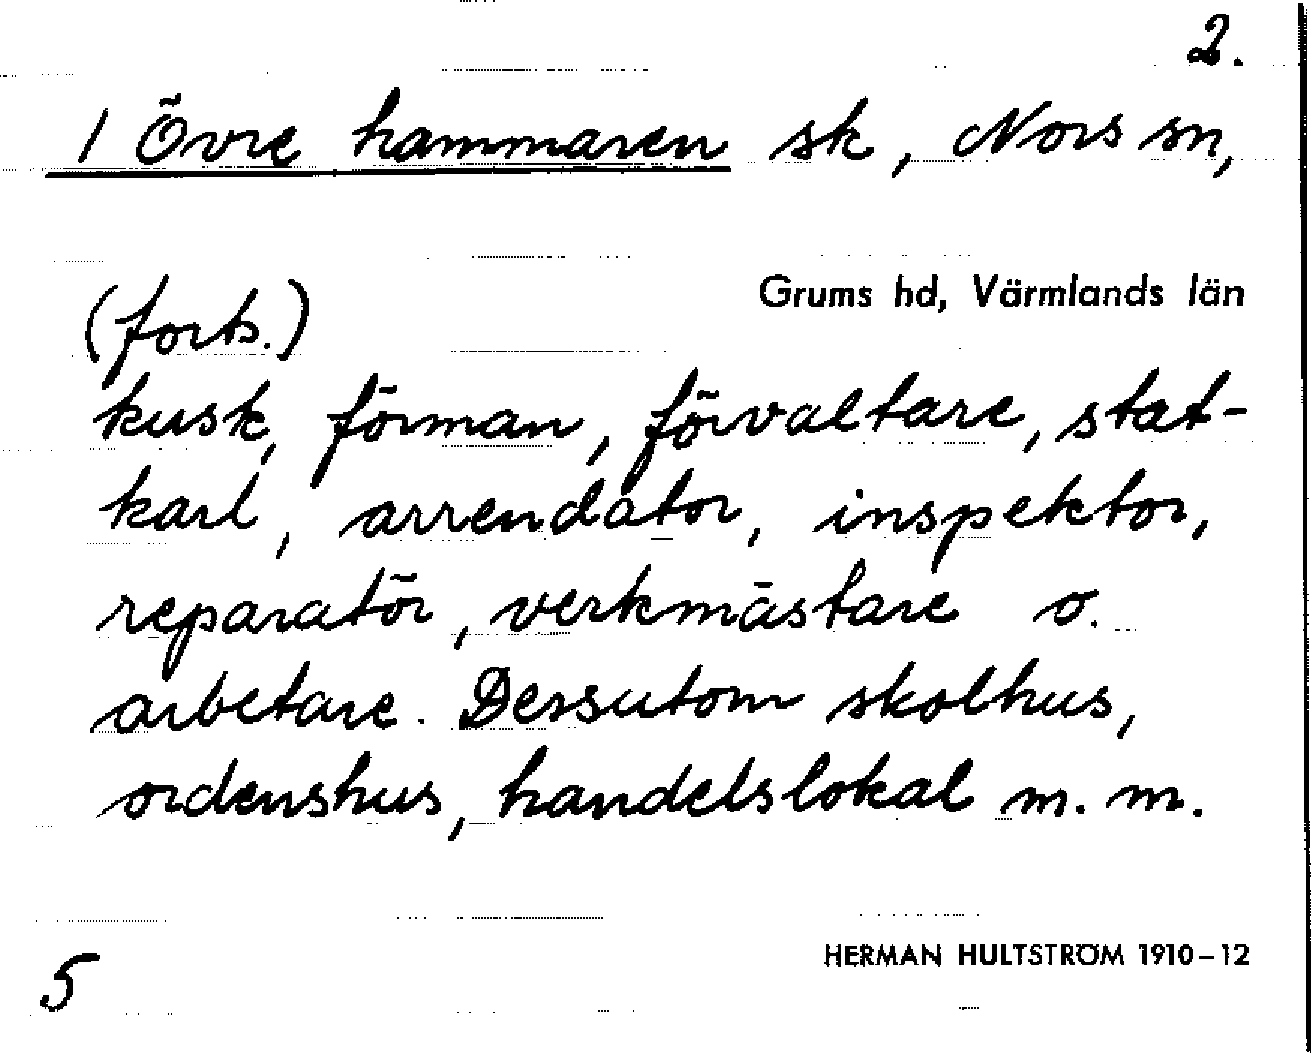 2.
/ Övre hammaren sk, Nors sn,
Grums hd, Värmlands län
(forts.)
kusk, förman, förvaltare, stat-
karl, arrendator, inspektor,
reparatör, verkmästare o.
arbetare. Dessutom skolhus,
ordenshus, handelslokal m. m.
HERMAN HULTSTRÖM 1910-12
5